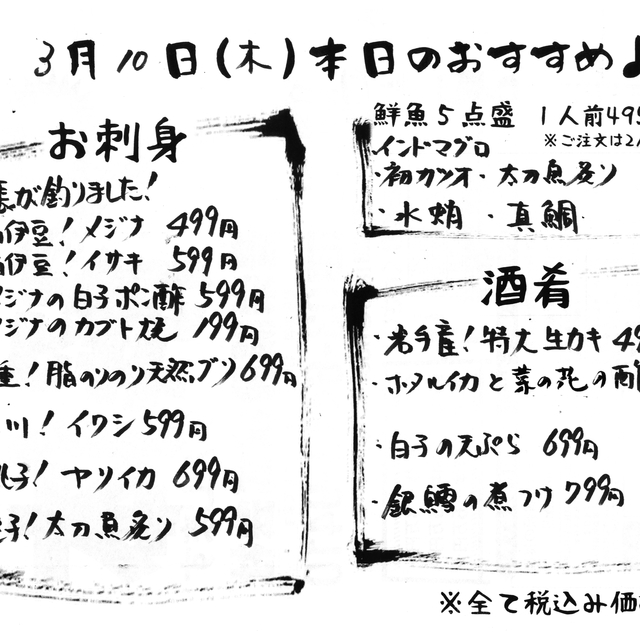 3月10日(木)本日のおすすめ♪
お刺身
が釣りました!
伊豆!メジナ 499円
伊豆!イサキ 599円
メジナの白子ポン酢 599円
メジナのカブト焼 199円
!脂のりのり天然ブリ 699円
川!イワシ 599円
子!ヤリイカ 699円
子!太刀魚炙り 599円
鮮魚5点盛 1人前495
※ご注文は2人
インドマグロ
・初カツオ・太刀魚炙り
・水蛸・真鯛
酒肴
・岩手産!特大生カキ 49
・ホタルイカと菜の花の酢
・白子の天ぷら 699円
・銀鱈の煮つけ 799円
※全て税込み価